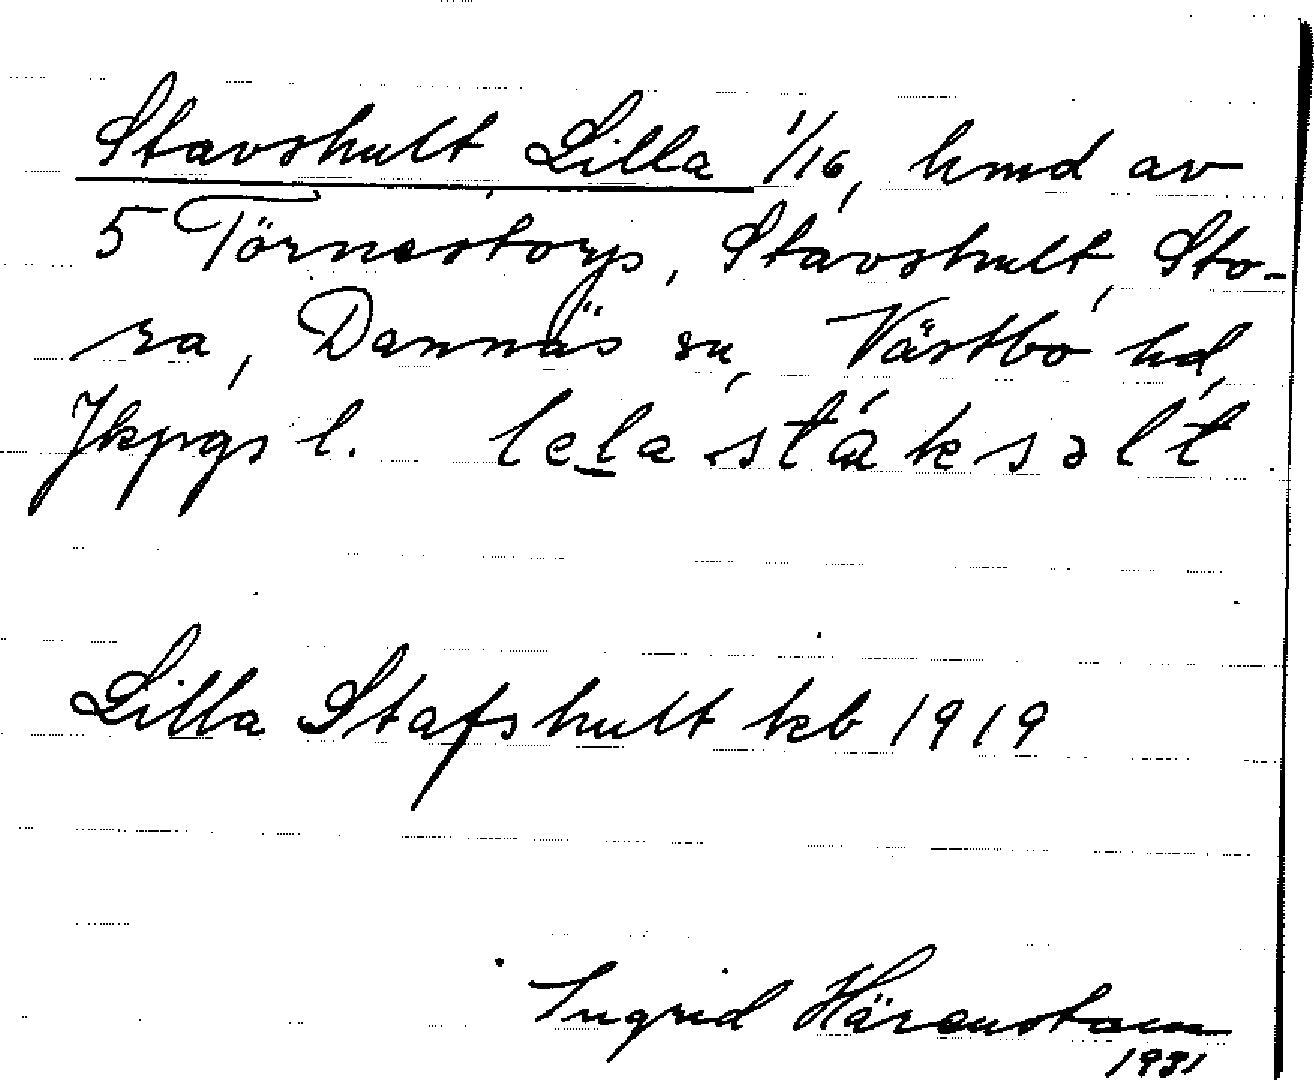 Stavshult, Lilla 1/16, hmd av
5 Törnestorp, Stavshult, Sto-
ra, Dannäs sn, Västbo hd,
Jkpgs l. lela stáksəlt
Lilla Stafshult kb 1919
Ingrid Härenstam
1931